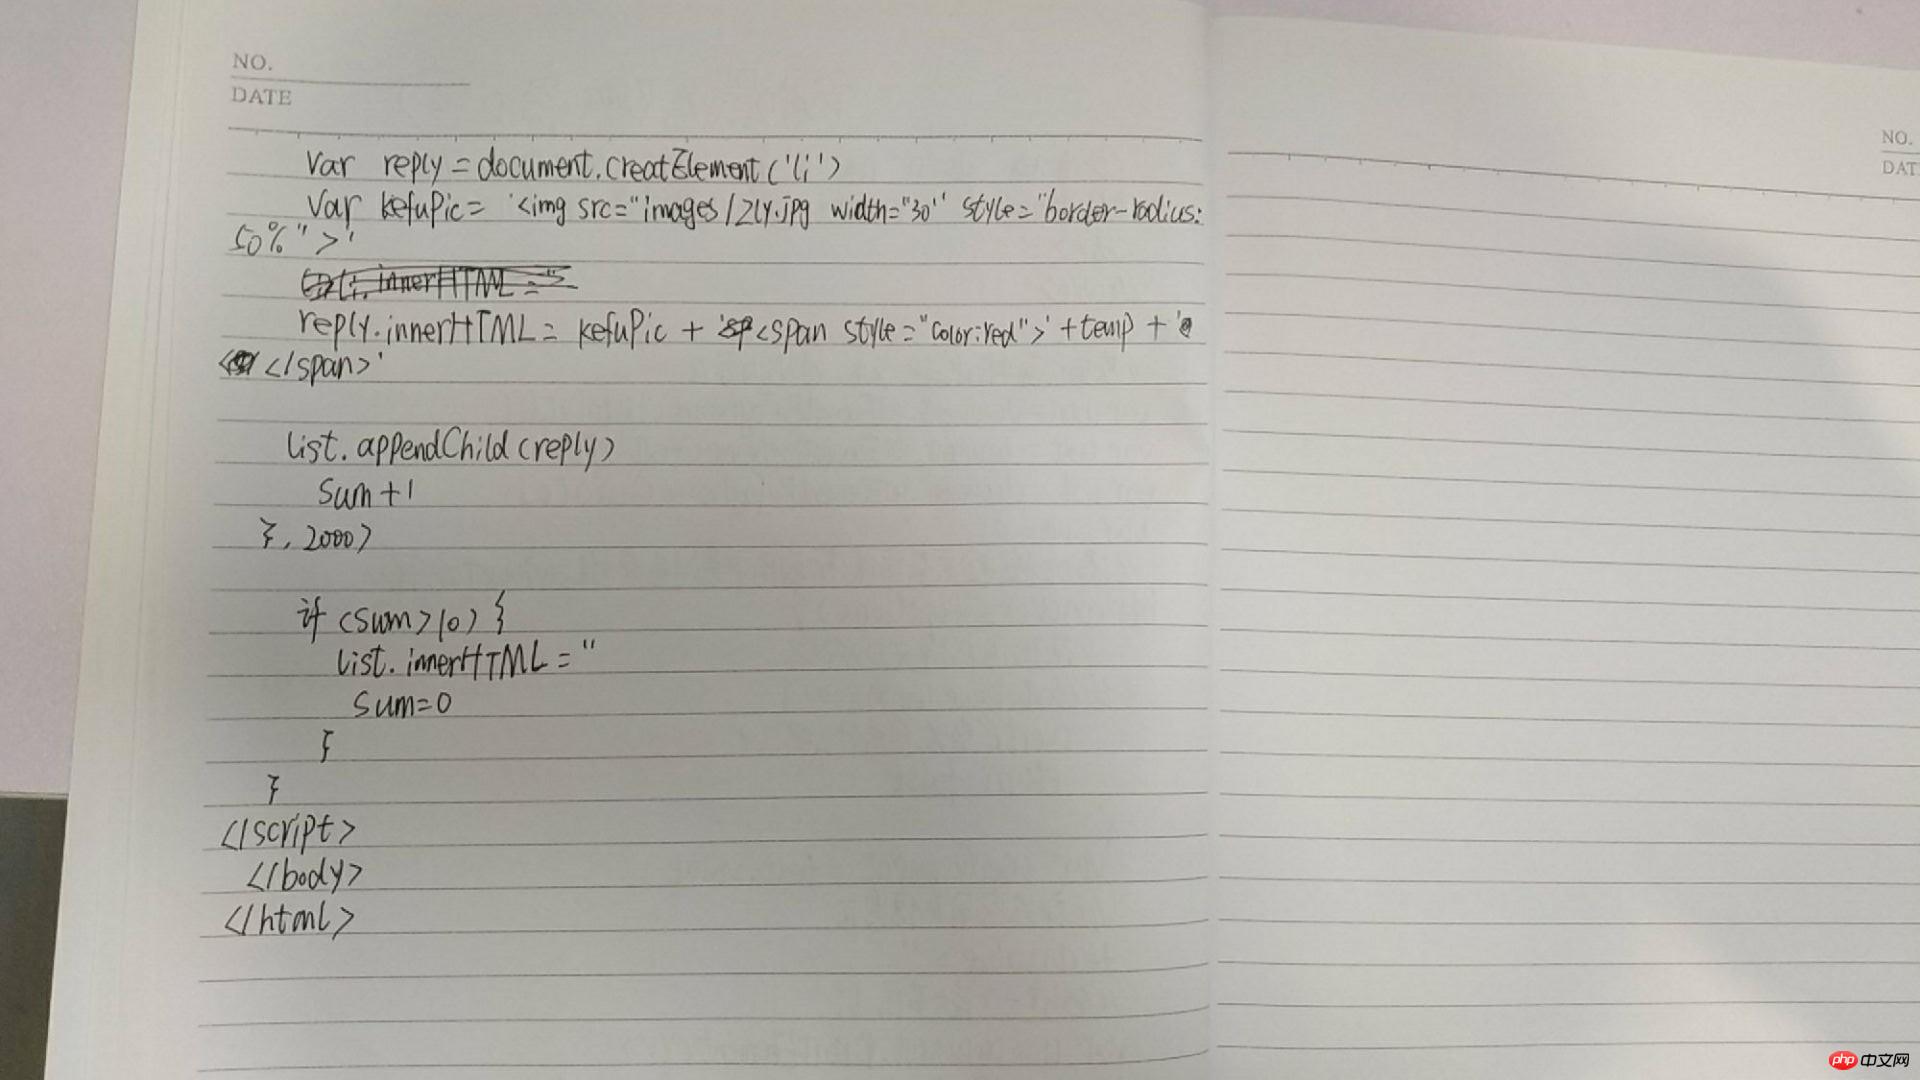 NO.
DATE
var reply = document.creatElement('li')
var kefuPic = '<img src="images/zly.jpg width="30" style="border-radius:
50%">'
li.innerHTML = ''
reply.innerHTML = kefuPic + '<span style="color:red">' + temp + '
</span>'
list.appendChild(reply)
sum+1
}, 2000)
if (sum>10) {
list.innerHTML = ''
sum=0
}
}
</script>
</body>
</html>
NO.
DAT
php 中文网